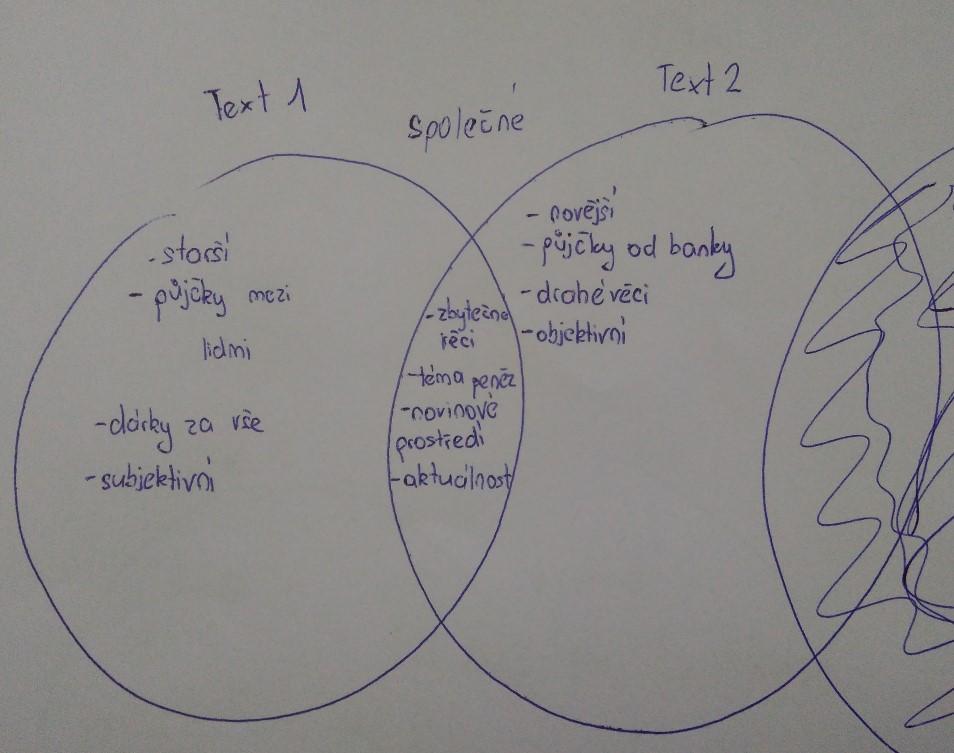 Text 1
společné
Text 2
- starší
- půjčky mezi
lidmi
- dárky za vše
- subjektivní
- zbytečné
věci
- téma peněz
- novinové
prostředí
- aktuálnost
- novější
- půjčky od banky
- drahé věci
- objektivní